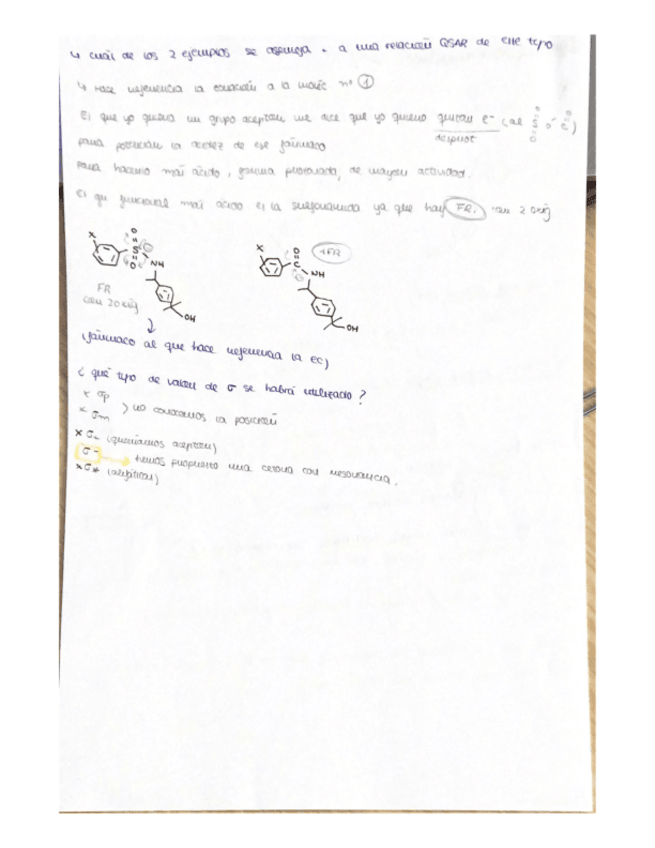 ↳ cuál de los 2 ejemplos se asemeja + a una relación QSAR de este tipo
↳ Hace referencia la ecuación a la matriz nº ①
El que yo quiera un grupo aceptor me dice que yo quiero quitar e⁻ (al O=S=O o C=O)
desprot
para potenciar la acidez de ese fármaco
para hacerlo más ácido, forma protonada, de mayor actividad.
El gr funcional más ácido es la sulfonamida ya que hay FR. con 2 oxíg
X O S O NH OH
X O C NH OH
1FR
FR
con 2 oxíg
(fármaco al que hace referencia la ec)
¿qué tipo de valor de σ se habrá utilizado?
x σp
x σm } no conocemos la posición
x σ+ (queríamos aceptor)
σ- → hemos propuesto una cetona con resonancia.
x σ* (alifáticos)